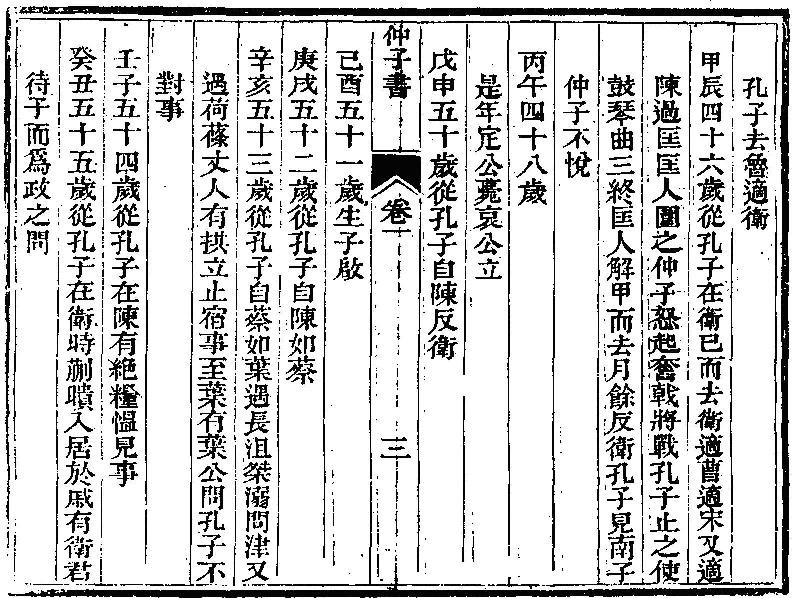 孔子去魯適衛
甲辰四十六歲從孔子在衛已而去衛適曹適宋又適
陳過匡匡人圍之仲子怒起奮戟將戰孔子止之使
鼓琴曲三終匡人解甲而去月餘反衛孔子見南子
仲子不悅
丙午四十八歲
是年定公薨哀公立
戊申五十歲從孔子自陳反衛
仲子書 卷一 三
己酉五十一歲生子啟
庚戌五十二歲從孔子自陳如蔡
辛亥五十三歲從孔子自蔡如葉遇長沮桀溺問津又
遇荷蓧丈人有拱立止宿事至葉有葉公問孔子不
對事
壬子五十四歲從孔子在陳有絶糧慍見事
癸丑五十五歲從孔子在衛時蒯聵入居於戚有衛君
待子而為政之問